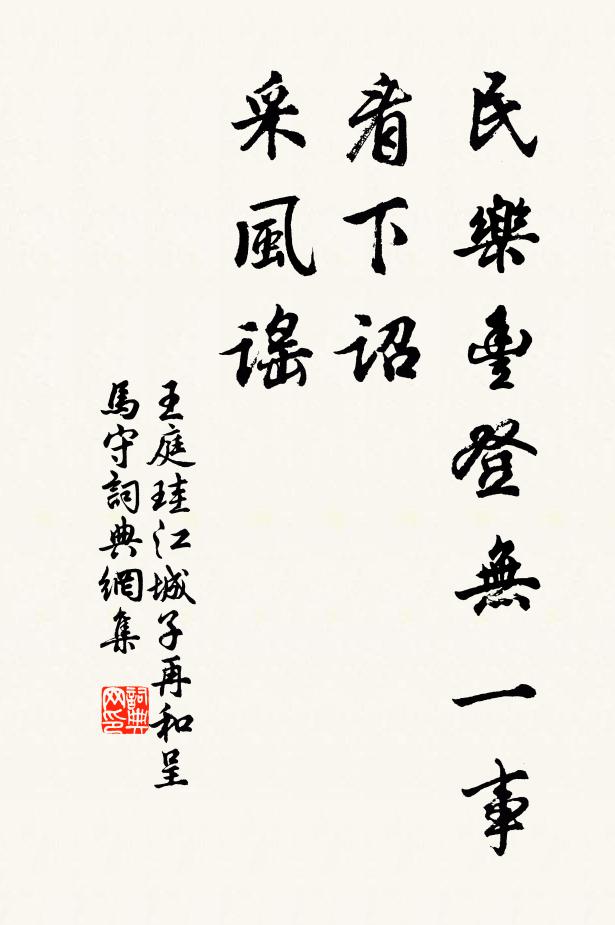 民樂豐登無一事
看下詔
采風謠
王庭珪江城子再和呈
馬守詞典網集
詞典网印